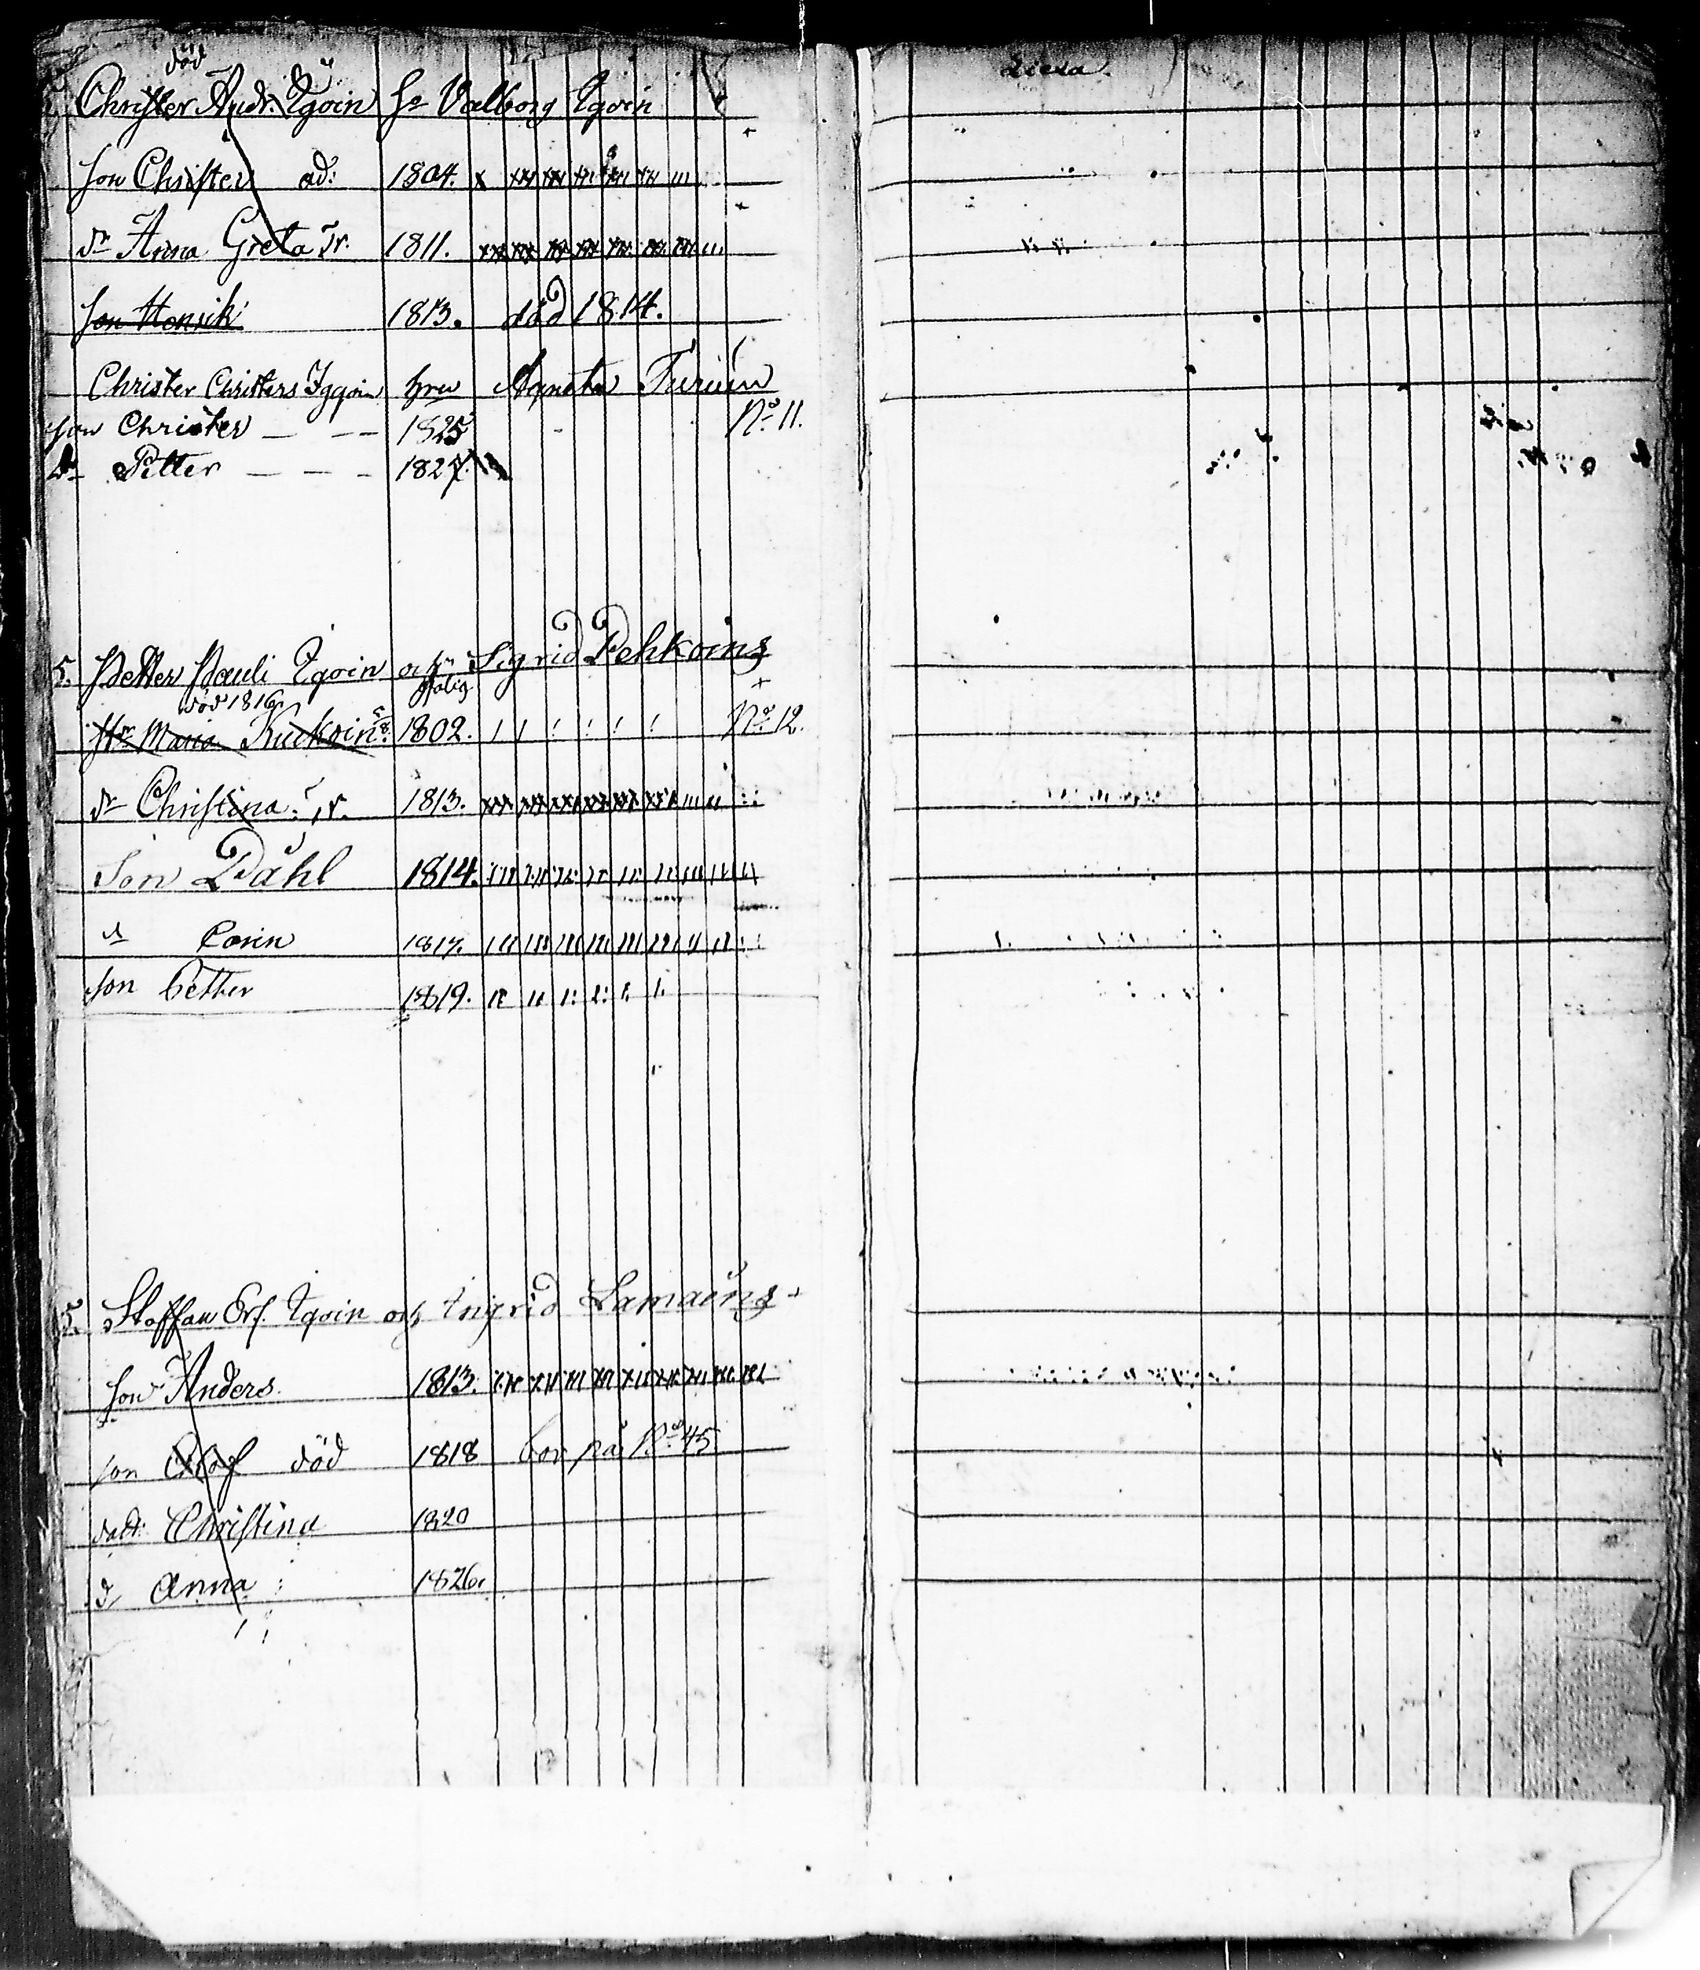 död
Christer Andr. Egoin Hr Valborg Egoin
Son Christer ad: 1804.
dr Anna Greta Tr. 1811.
Son Henrik 1813. död 1814.
Christer Christers Iggoin hru Agneta Turiun
No 11.
Son Christer — — — 1825
Dr Petter — — — 1827.
5. Petter Pauli Egoin och Sigrid Pehkoing
död 1816
Hr Maria Kuckoin 1802. No 12.
dr Christina 1813.
Son Påhl 1814.
dr Carin 1817.
Son Petter 1819.
5. Staffan Ers. Egoin och Ingrid Lamaing
Son Anders 1813.
Son Olof död 1818 bor på No 45
dott: Christina 1820
d Anna 1826.